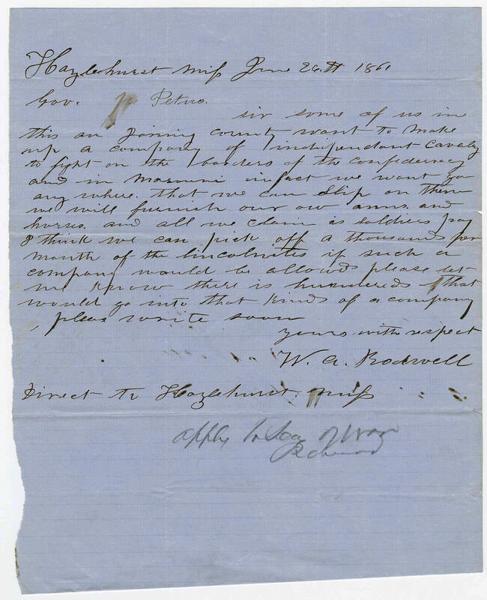 Hazlehurst Miss June 26th 1861
Gov. Petus.
sir some of us in
this an Joining county want to make
up a company of indipendant Cavalry
to fight on the borders of the confederacy
and in Missouri infact we want go
any where that we can slip on them
we will furnish our ow arms and
horses and all we claim is soldiers pay
I think we can pick off a thousand per
month of the Lincolnites if such a
company would be allowed please let
me know there is hundreds that
would go into that kind of a company
pleas write soon
yours with respect
W. A. Rockwell
Direct to Hazlehurst Miss
apply to Sec of War
Richmond